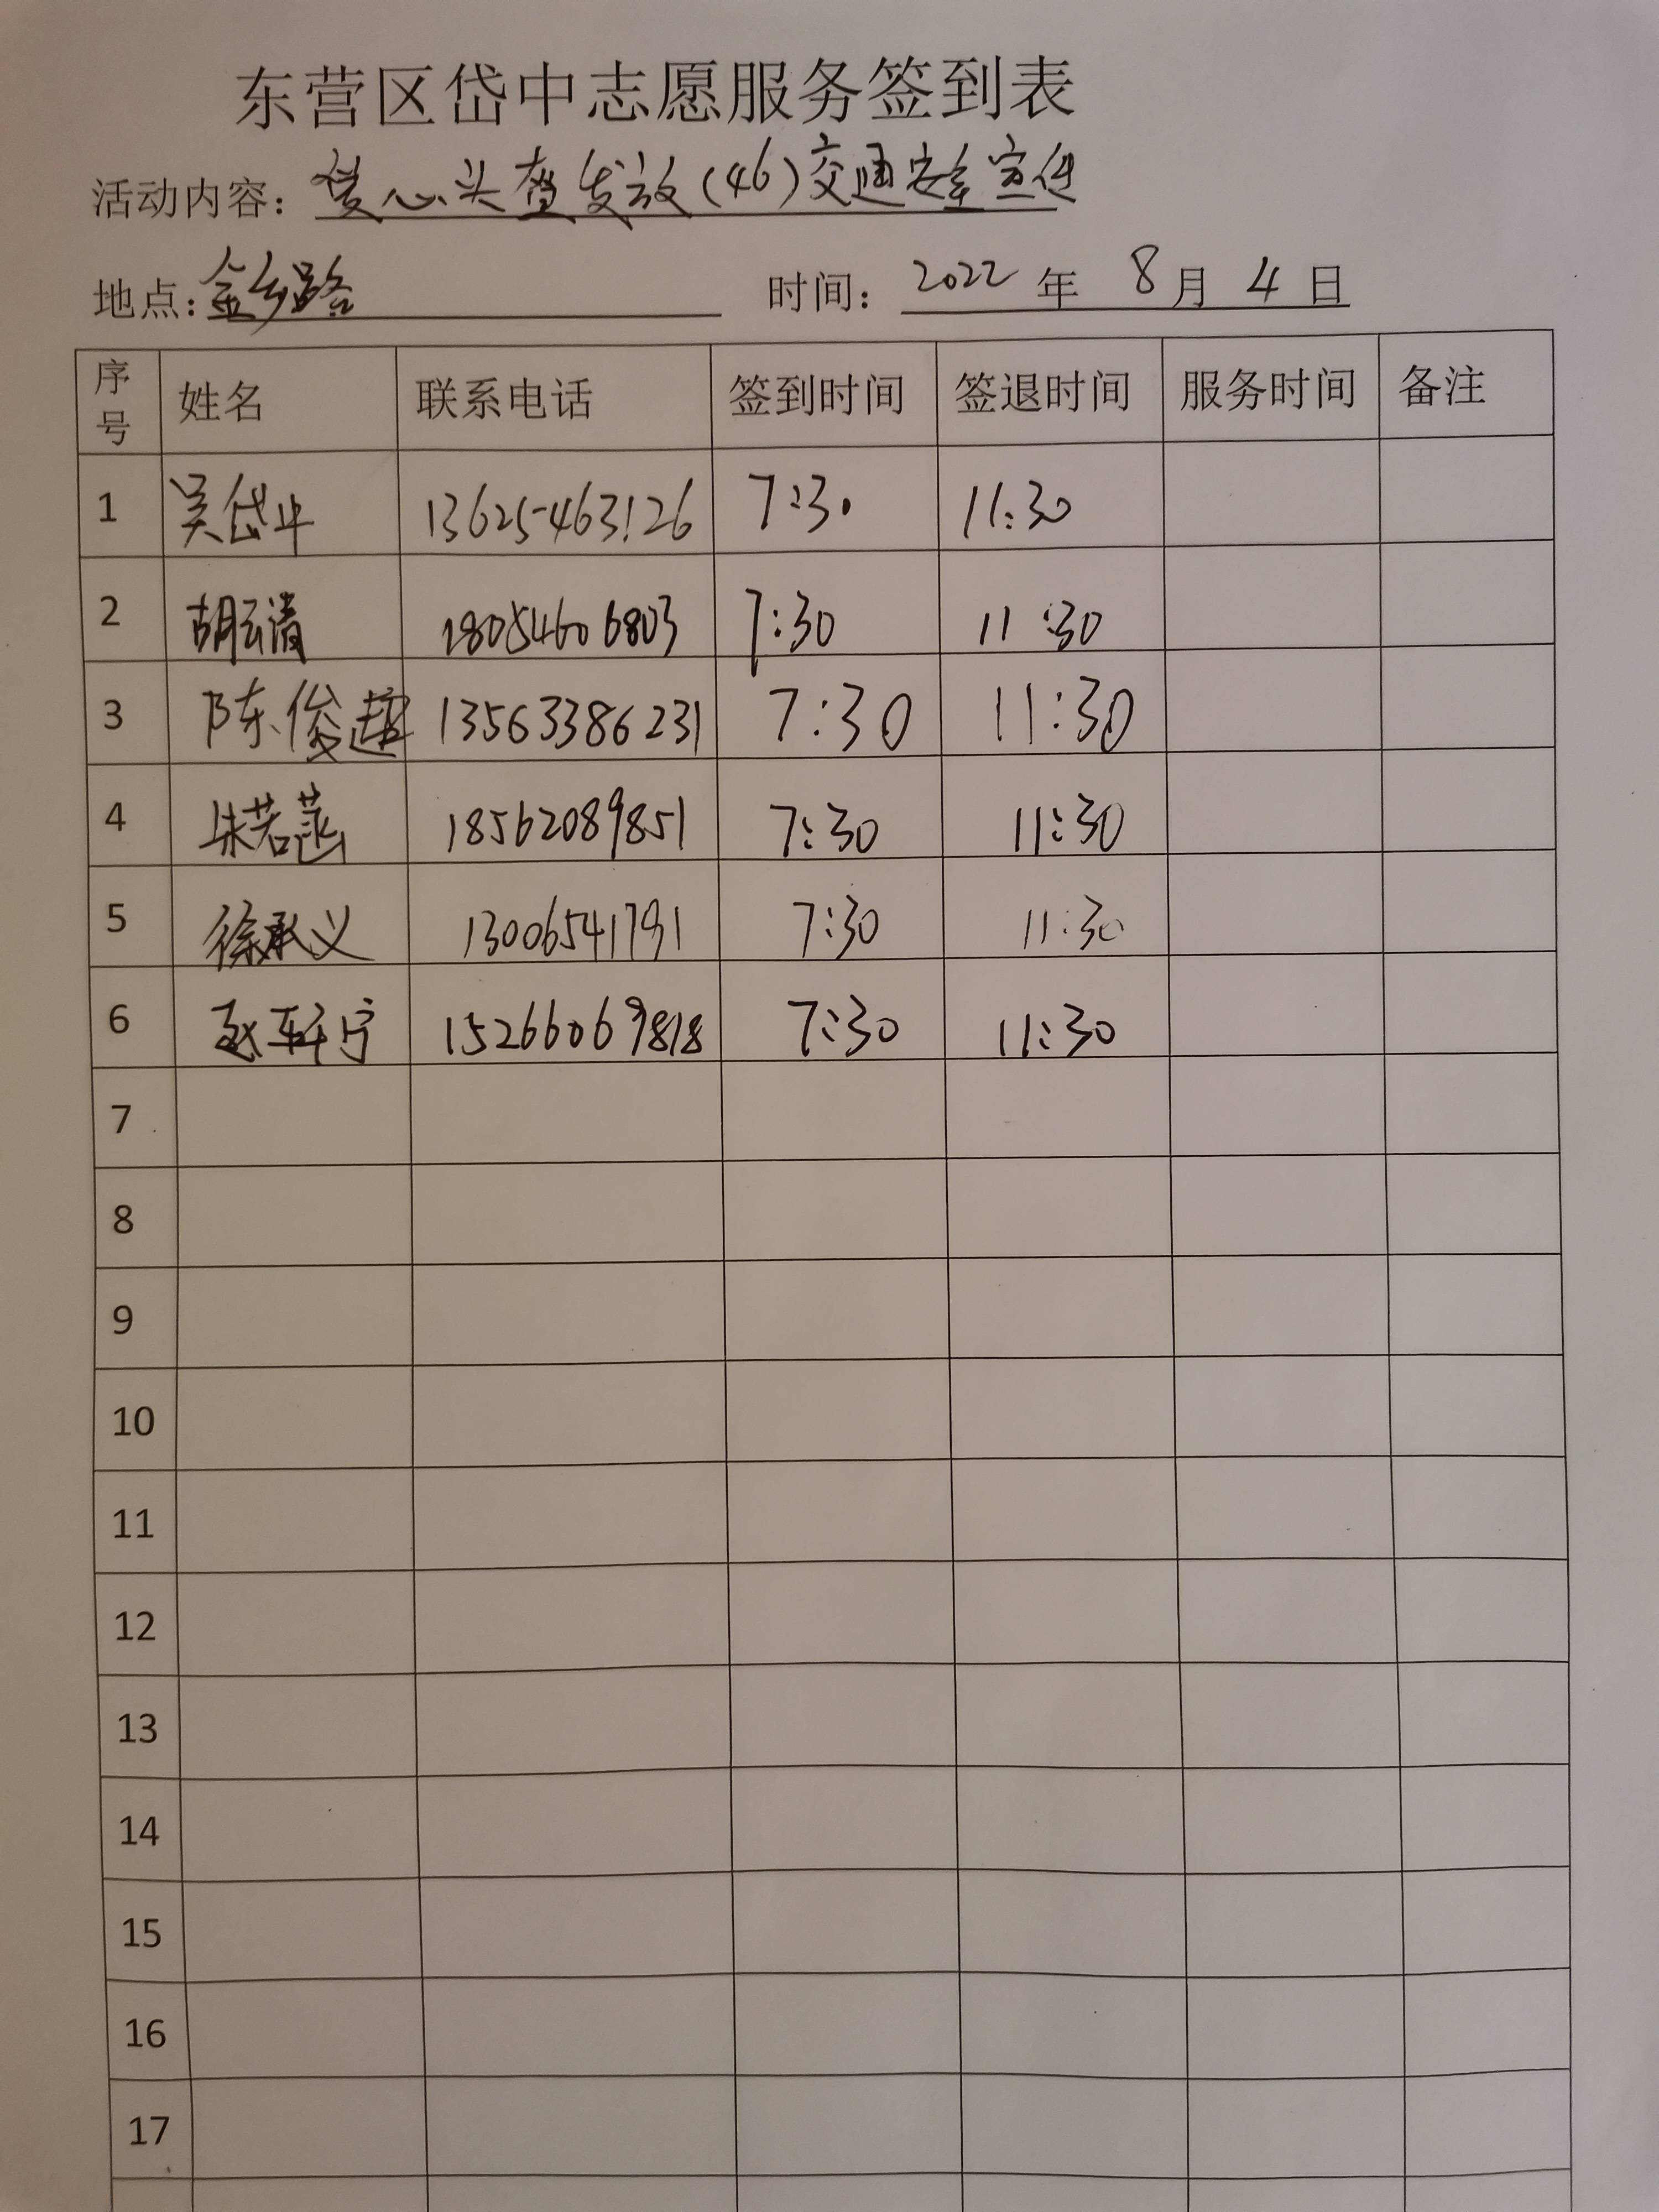 东营区岱中志愿服务签到表
活动内容：爱心头盔发放(46)交通安全宣传
地点：金乡路 时间：2022年 8月 4日
序号 姓名 联系电话 签到时间 签退时间 服务时间 备注
1 吴岱中 13625463126 7:30 11:30
2 胡云清 18054606803 7:30 11:30
3 陈俊趣 13563386231 7:30 11:30
4 朱若菡 18562089851 7:30 11:30
5 徐承义 13006541791 7:30 11:30
6 赵轩宁 15266069818 7:30 11:30
7
8
9
10
11
12
13
14
15
16
17